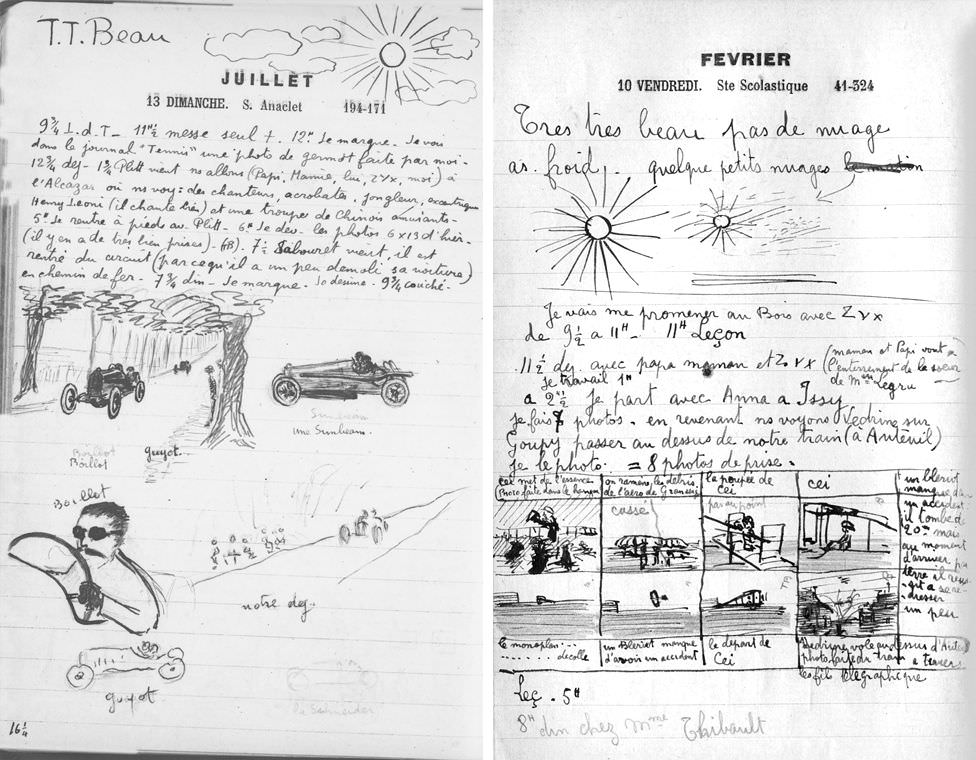 T.T. Beau
JUILLET
13 DIMANCHE. S. Anaclet 194-171
9¾ L.d.T- 11H½ messe seul †. 12H Je marque. Je vois
dans le journal "Tennis" une photo de germot faite par moi.
12¾ dej- 1¾ Plitt vient ns allons (Papi, Mamie, lui, ZYX, moi) à
l'Alcazar où ns voy: des chanteurs, acrobates, jongleur, excentrique
Henry Leoni (il chante très) et une troupe de Chinois amusants-
5H Je rentre à pieds av. Plitt- 6H Je dev. les photos 6x13 d'hier-
(il y en a de tres bien prises). 7½ Sabouret vient, il est
rentré du circuit (parcequ'il a un peu demoli sa voiture)
en chemin de fer. 7¾ din- Je marque. Je dessine. 9¾ couché-
Sunbeam
une Sunbeam.
Boillot
Boillot
guyot.
Boillot
notre dej.
guyot
la Schneider
16¼
FEVRIER
10 VENDREDI. Ste Scolastique 41-324
Tres tres beau pas de nuage
as. froid. quelque petits nuages
Je vais me promener au Bois avec ZYX
de 9½ a 11H- 11H Leçon
11½ dej. avec papa maman et ZYX (maman et Papi vont a
l'enterrement de la soeur
de Mme Legru
je travail 1H
a 2H½ Je part avec Anna a Issy
je fais 7 photos. en revenant ns voyons Vedrine sur
Goupy passer au dessus de notre train (à Auteuil)
je le photo. = 8 photos de prise.
cei met de l'essence
Photo faite dans le hangar
on ramene les debris
de l'aero de Granseig
la poupée de
Cei
cei
un bleriot
manque d'a
un accident
il tombe de
20m mais
au moment
d'arriver pa
terre il reus
-sit a se re-
dresser
un peu
cassé
pas au point
le monoplan...
...... decolle
un Bleriot manque
d'avoir un accident
le depart de
Cei
Vedrine vole au dessus d'Auteu
photo faite du train a travers
les fils telegraphique
Leç. 5H
8H din chez Mme Thibault